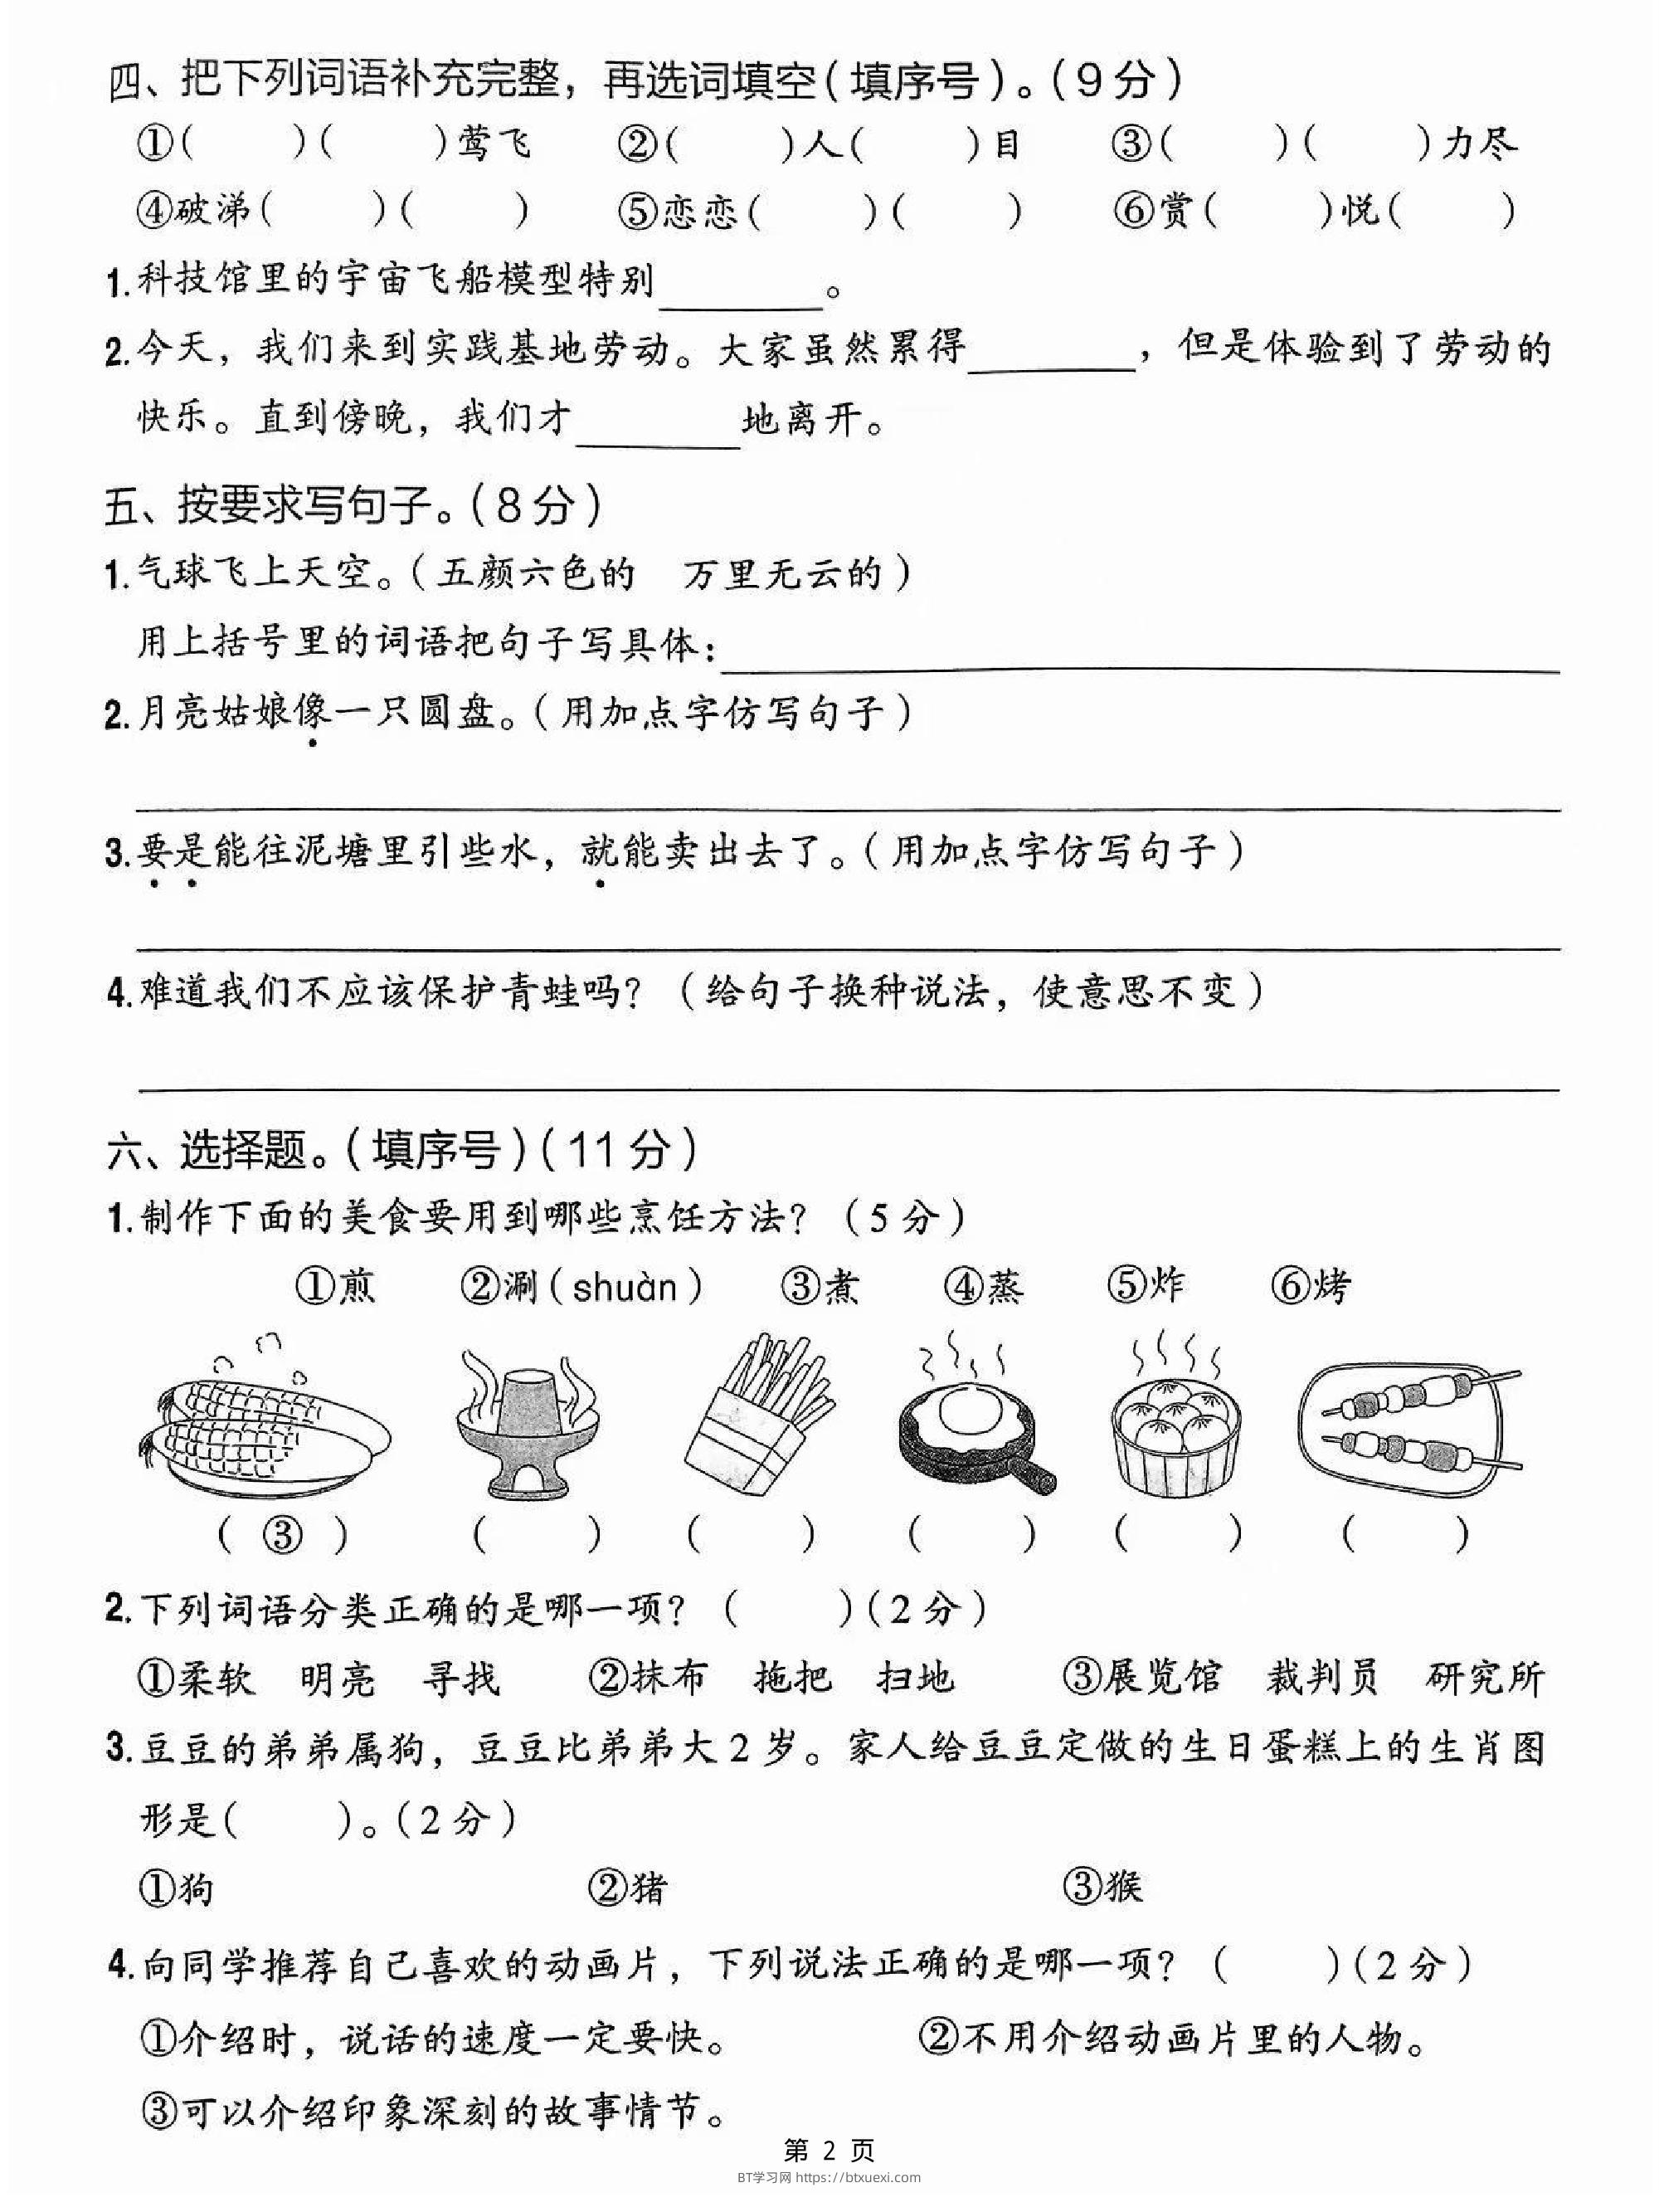 四、把下列词语补充完整，再选词填空(填序号)。(9分)
①(　　)(　　)莺飞　②(　　)人(　　)目　③(　　)(　　)力尽
④破涕(　　)(　　)　⑤恋恋(　　)(　　)　⑥赏(　　)悦(　　)
1.科技馆里的宇宙飞船模型特别________。
2.今天，我们来到实践基地劳动。大家虽然累得________，但是体验到了劳动的
快乐。直到傍晚，我们才________地离开。
五、按要求写句子。(8分)
1.气球飞上天空。(五颜六色的　万里无云的)
用上括号里的词语把句子写具体：________
2.月亮姑娘像一只圆盘。(用加点字仿写句子)
3.要是能往泥塘里引些水，就能卖出去了。(用加点字仿写句子)
4.难道我们不应该保护青蛙吗？(给句子换种说法，使意思不变)
六、选择题。(填序号)(11分)
1.制作下面的美食要用到哪些烹饪方法？(5分)
①煎　②涮(shuàn)　③煮　④蒸　⑤炸　⑥烤
(③)　(　　)　(　　)　(　　)　(　　)　(　　)
2.下列词语分类正确的是哪一项？(　　)(2分)
①柔软　明亮　寻找　②抹布　拖把　扫地　③展览馆　裁判员　研究所
3.豆豆的弟弟属狗，豆豆比弟弟大2岁。家人给豆豆定做的生日蛋糕上的生肖图
形是(　　)。(2分)
①狗　②猪　③猴
4.向同学推荐自己喜欢的动画片，下列说法正确的是哪一项？(　　)(2分)
①介绍时，说话的速度一定要快。　②不用介绍动画片里的人物。
③可以介绍印象深刻的故事情节。
第 2 页
BT学习网 https://btxuexi.com